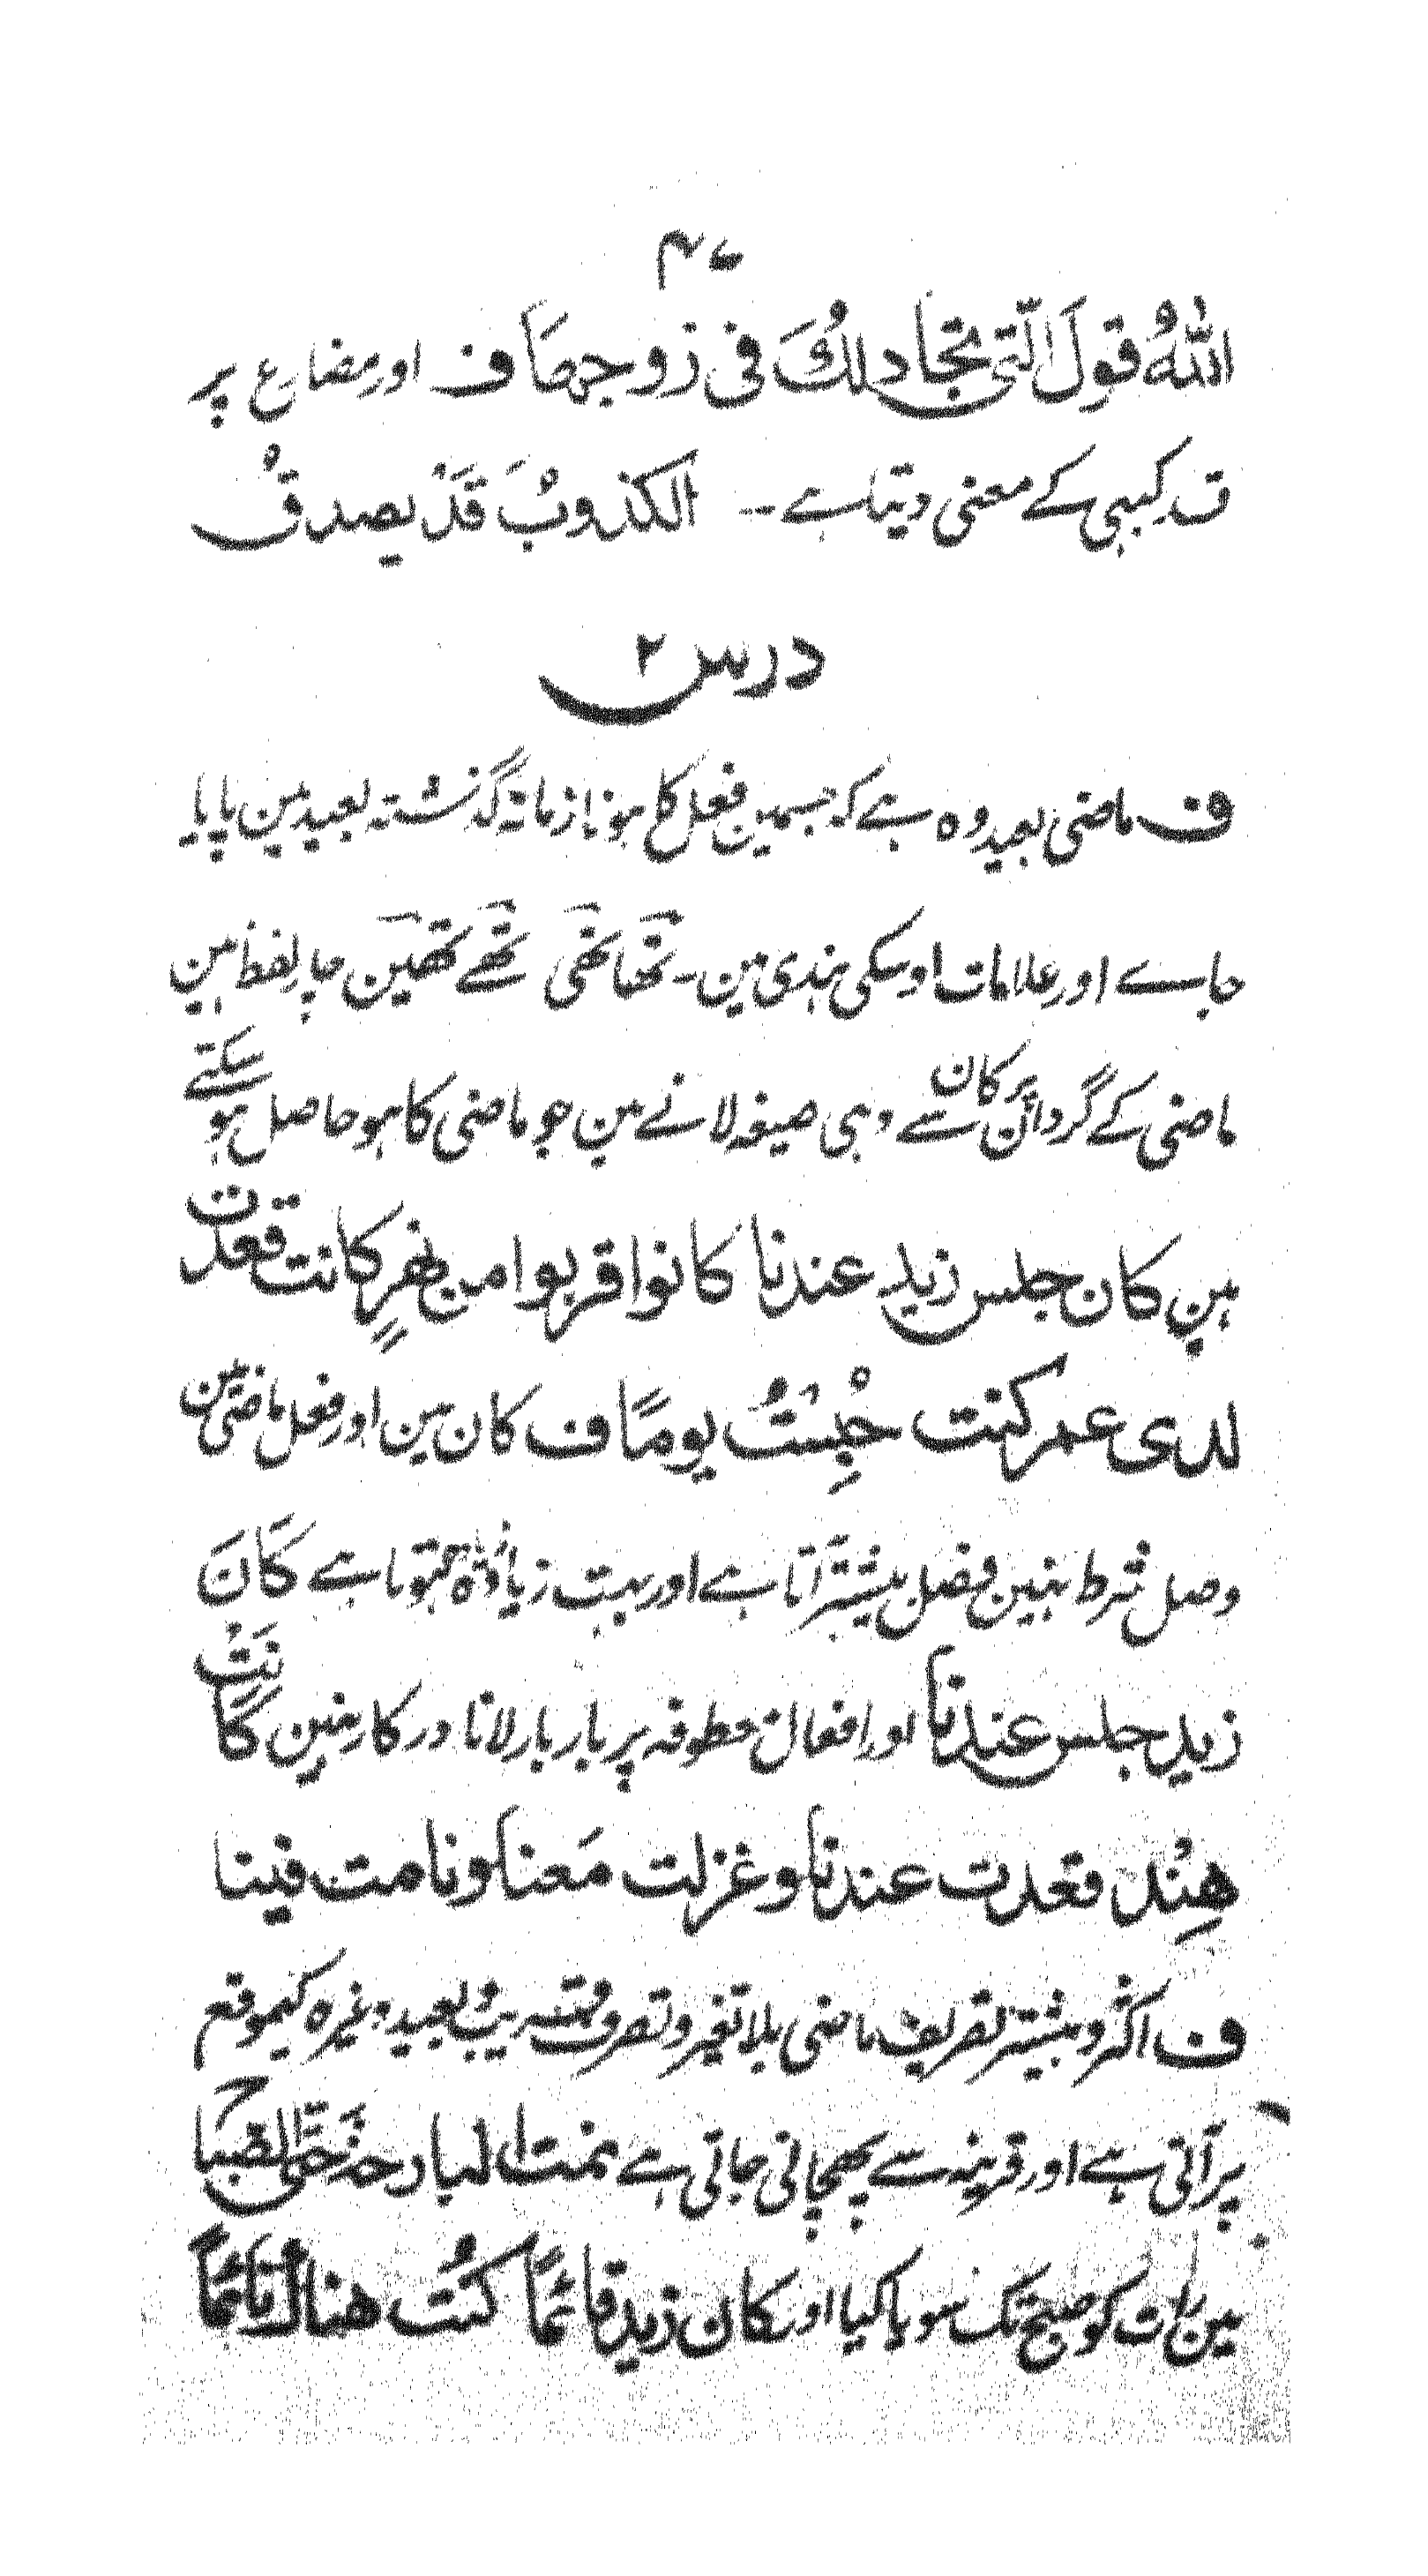 اللهُ قولَ الّتی تجادلكَ فی زوجها ف اور مضارع پر
قد کبہی کے معنی دیتا ہے -- الکذوبَ قَدْ یصدقُ
درس ۲
ف ماضی بعید وہ ہے کہ جسمین فعل کا ہونا زمانہ گذشتہ بعید مین پایا
جاے اور علامات اوسکی ہندی مین - تھا تھی تھے تھین چار لفظ ہین
ماضی کے گردان پر کان سے وہی صیغہ لانے مین جو ماضی کا ہو حاصل ہو سکتے
ہین کان جلس زید عندنا کانوا قربوا من نهرٍ کانت قعدت
لدی عمر کنت جِئتُ یومًا ف کان مین اور فعل ماضی مین
وصل شرط نہین فصل بیشتر آتا ہے اور بہت زیادہ ہوتا ہے کَانَ
زید جلس عندنا اور افعال معطوفہ پر بار بار لانا درکار نہین کانَتْ
هِنْد قعدت عندنا وغزلت مَعنا ونامت فینا
ف اکثر و بیشتر تعریف ماضی بلا تغیر و تصرف قریب بعید وغیرہ کیموقع
پر آتی ہے اور قرینہ سے پہچانی جاتی ہے نمت البارحۃ حتی الصباح
مین رات کو صبح تک سویا کیا اور کان زید قائمًا کنتُ هناك نائمًا